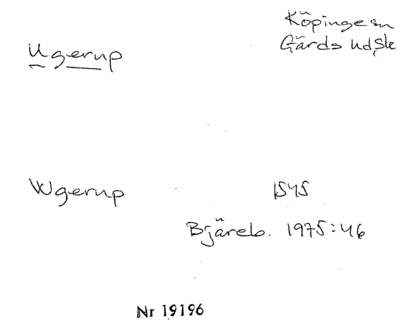 Ugerup
Köpinge sn
Gärds hd, Sk
Wgerup
1545
Bjäreb. 1975:46
Nr 19196